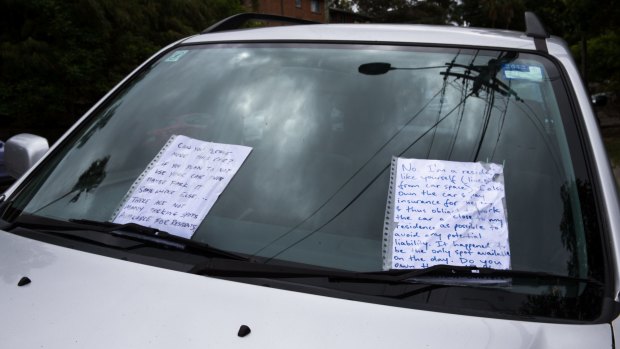 CAN YOU PLEASE
MOVE THIS CAR?
IF YOU PLAN TO NOT
USE YOUR CAR THEN
MAYBE PARK IT
SOMEWHERE ELSE.
THERE ARE NOT
MANY PARKING SPOTS
AVAILABLE FOR RESIDENTS
No. I'm a reside
like yourself
from car space I also
own the car &
insurance for
& thus park
the car a close to my
residence as possible to
avoid any potential
liability. It happened
be the only spot available
on the day. Do you
own